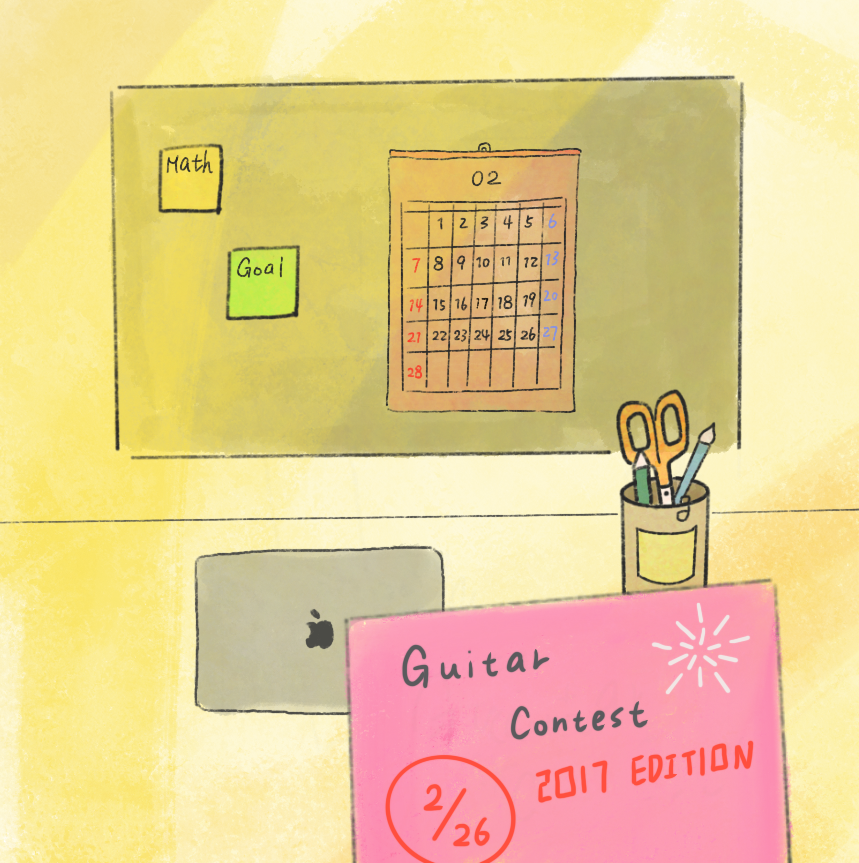 Math
Goal
02
1 2 3 4 5 6
7 8 9 10 11 12 13
14 15 16 17 18 19 20
21 22 23 24 25 26 27
28
Guitar
Contest
2017 EDITION
2/26